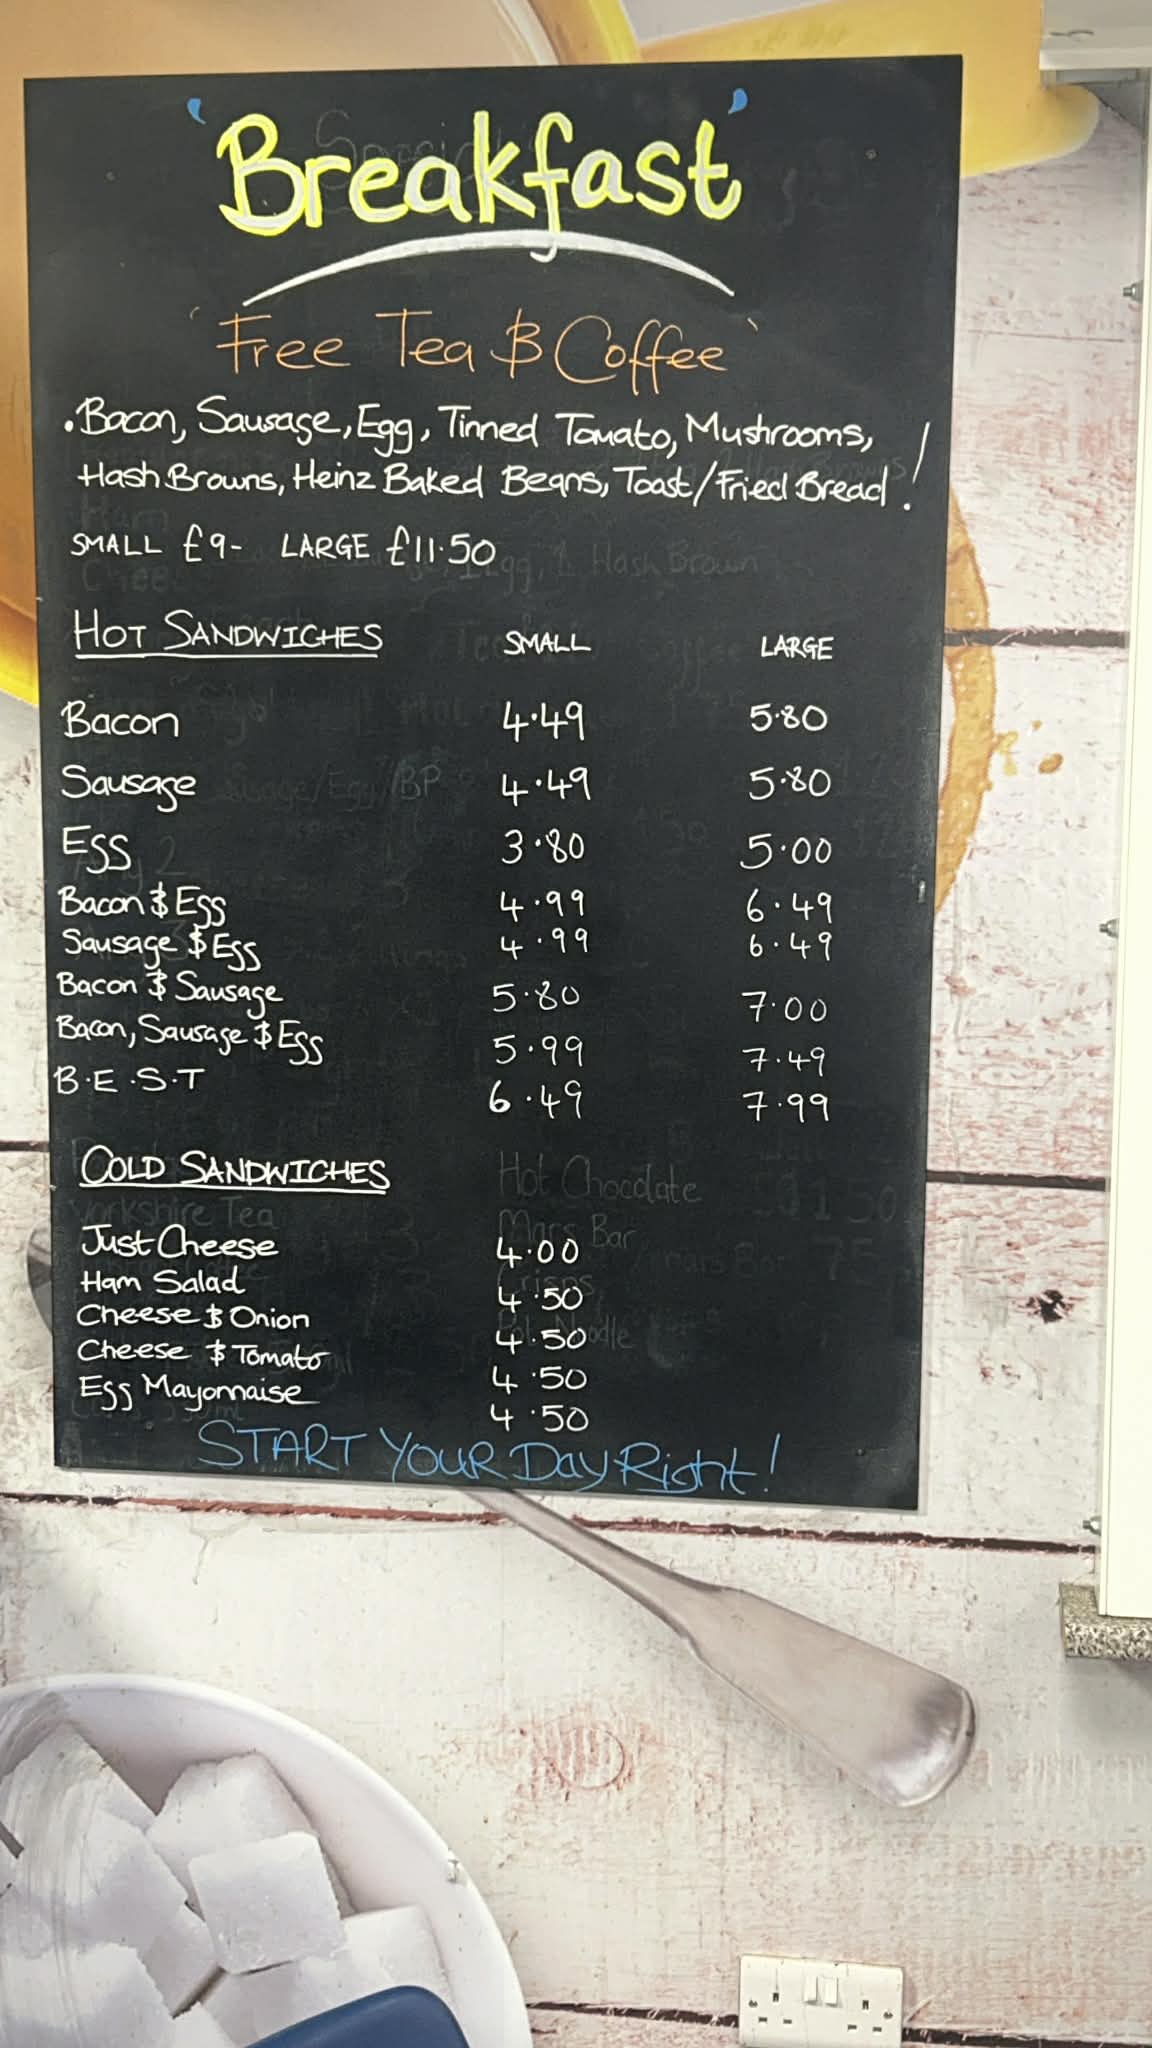 'Breakfast'
'Free Tea & Coffee'
• Bacon, Sausage, Egg, Tinned Tomato, Mushrooms,
Hash Browns, Heinz Baked Beans, Toast/Fried Bread!
SMALL £9- LARGE £11.50
HOT SANDWICHES SMALL LARGE
Bacon 4.49 5.80
Sausage 4.49 5.80
Egg 3.80 5.00
Bacon & Egg 4.99 6.49
Sausage & Egg 4.99 6.49
Bacon & Sausage 5.80 7.00
Bacon, Sausage & Egg 5.99 7.49
B.E.S.T 6.49 7.99
COLD SANDWICHES
Hot Chocolate
Yorkshire Tea
Mars Bar
Just Cheese 4.00
Ham Salad 4.50
Cheese & Onion 4.50
Cheese & Tomato 4.50
Egg Mayonnaise 4.50
START YOUR Day Right!